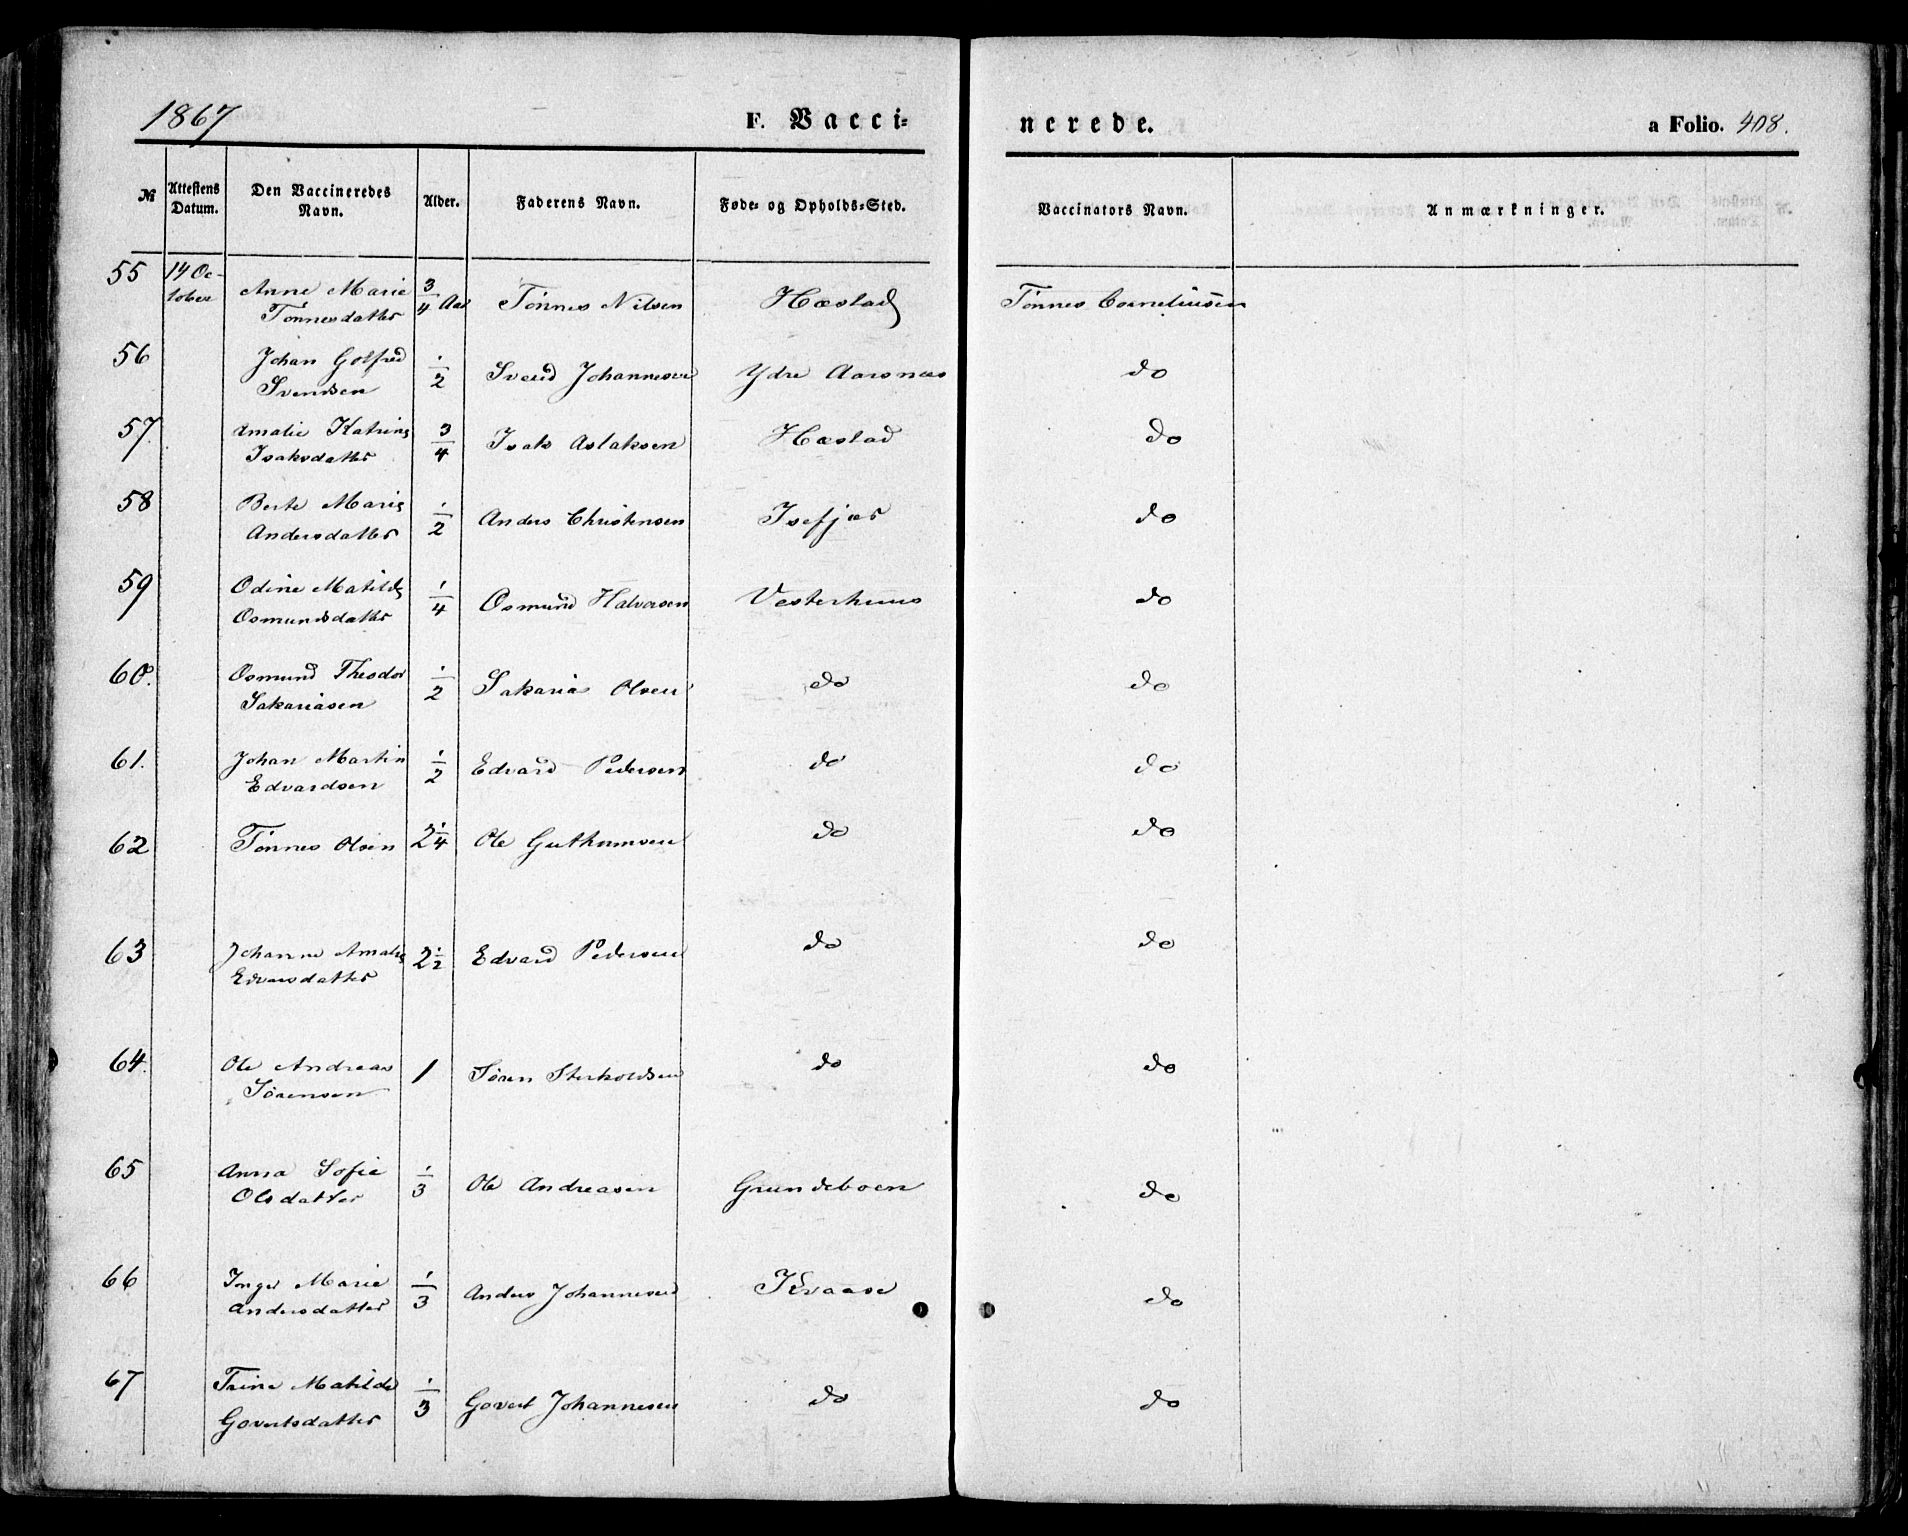 1867
F. Vacci=
nerede.
a Folio. 408.
№ Attestens Datum. Den Vaccineredes Navn. Alder. Faderens Navn. Føde- og Opholds-Sted. Vaccinators Navn. Anmærkninger.
55 14 Oc- Anne Marie 3/4 Aar Tönnes Nilsen Hæstad Tönnes Corneliussen
tober Tönnesdatter
56 Johan Gotfred 1/2 Svend Johannesen Ydre Aarsnes do
Svendsen
57 Amalie Katrine 3/4 Isak Aslaksen Hæstad do
Isaksdatter
58 Berte Marie 1/2 Anders Christensen Isefjær do
Andersdatter
59 Odine Matilde 1/4 Osmund Halvorsen Vesterhuus do
Osmundsdatter
60. Osmund Theodor 1/2 Sakarias Olsen do do
Sakariasen
61. Johan Martin 1/2 Edvard Pedersen do do
Edvardsen
62 Tönnes Olsen 2 1/4 Ole Guthumsen do do
63 Johanne Amalie 2 1/2 Edvard Pedersen do do
Edvarsdatter
64. Ole Andreas 1 Sören Sterkoldsen do do
Sörensen
65 Anna Sofie 1/3 Ole Andreasen Grundeboen do
Olsdatter
66 Inger Marie 1/3 Anders Johannesen Kvaase do
Andersdatter
67 Trine Matilde 1/3 Govert Johannesen do do
Govertsdatter